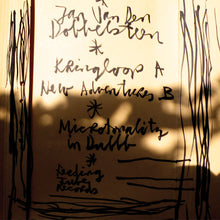 *
Jan Van Den
Dobbelsteen
*
Kringloop A
New Adventures B
*
Microtonality
in Dubb
*
Feeding
Tube
Records